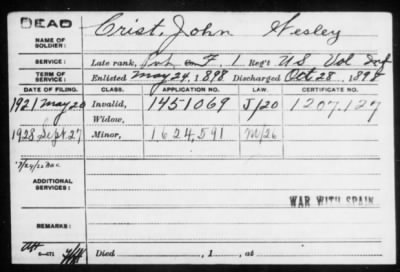 DEAD
Crist, John Wesley
NAME OF SOLDIER:
SERVICE: Late rank, Pvt Co F. 1 Reg't US Vol Inf
TERM OF SERVICE: Enlisted May 24, 1898 Discharged Oct 28, 1898
DATE OF FILING. CLASS. APPLICATION NO. LAW. CERTIFICATE NO.
1921 May 20 Invalid, 1451069 J/20 1207.127
Widow,
1928 Sept 27 Minor, 1624,591 M/26
ADDITIONAL SERVICES:
WAR WITH SPAIN
REMARKS:
6-471 Died , 1 , at